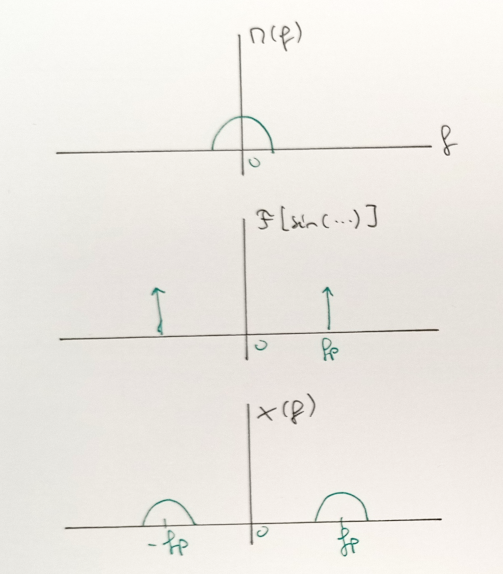 n(f)
f
0
F[sin(...)]
0
fp
X(f)
-fp
0
fp